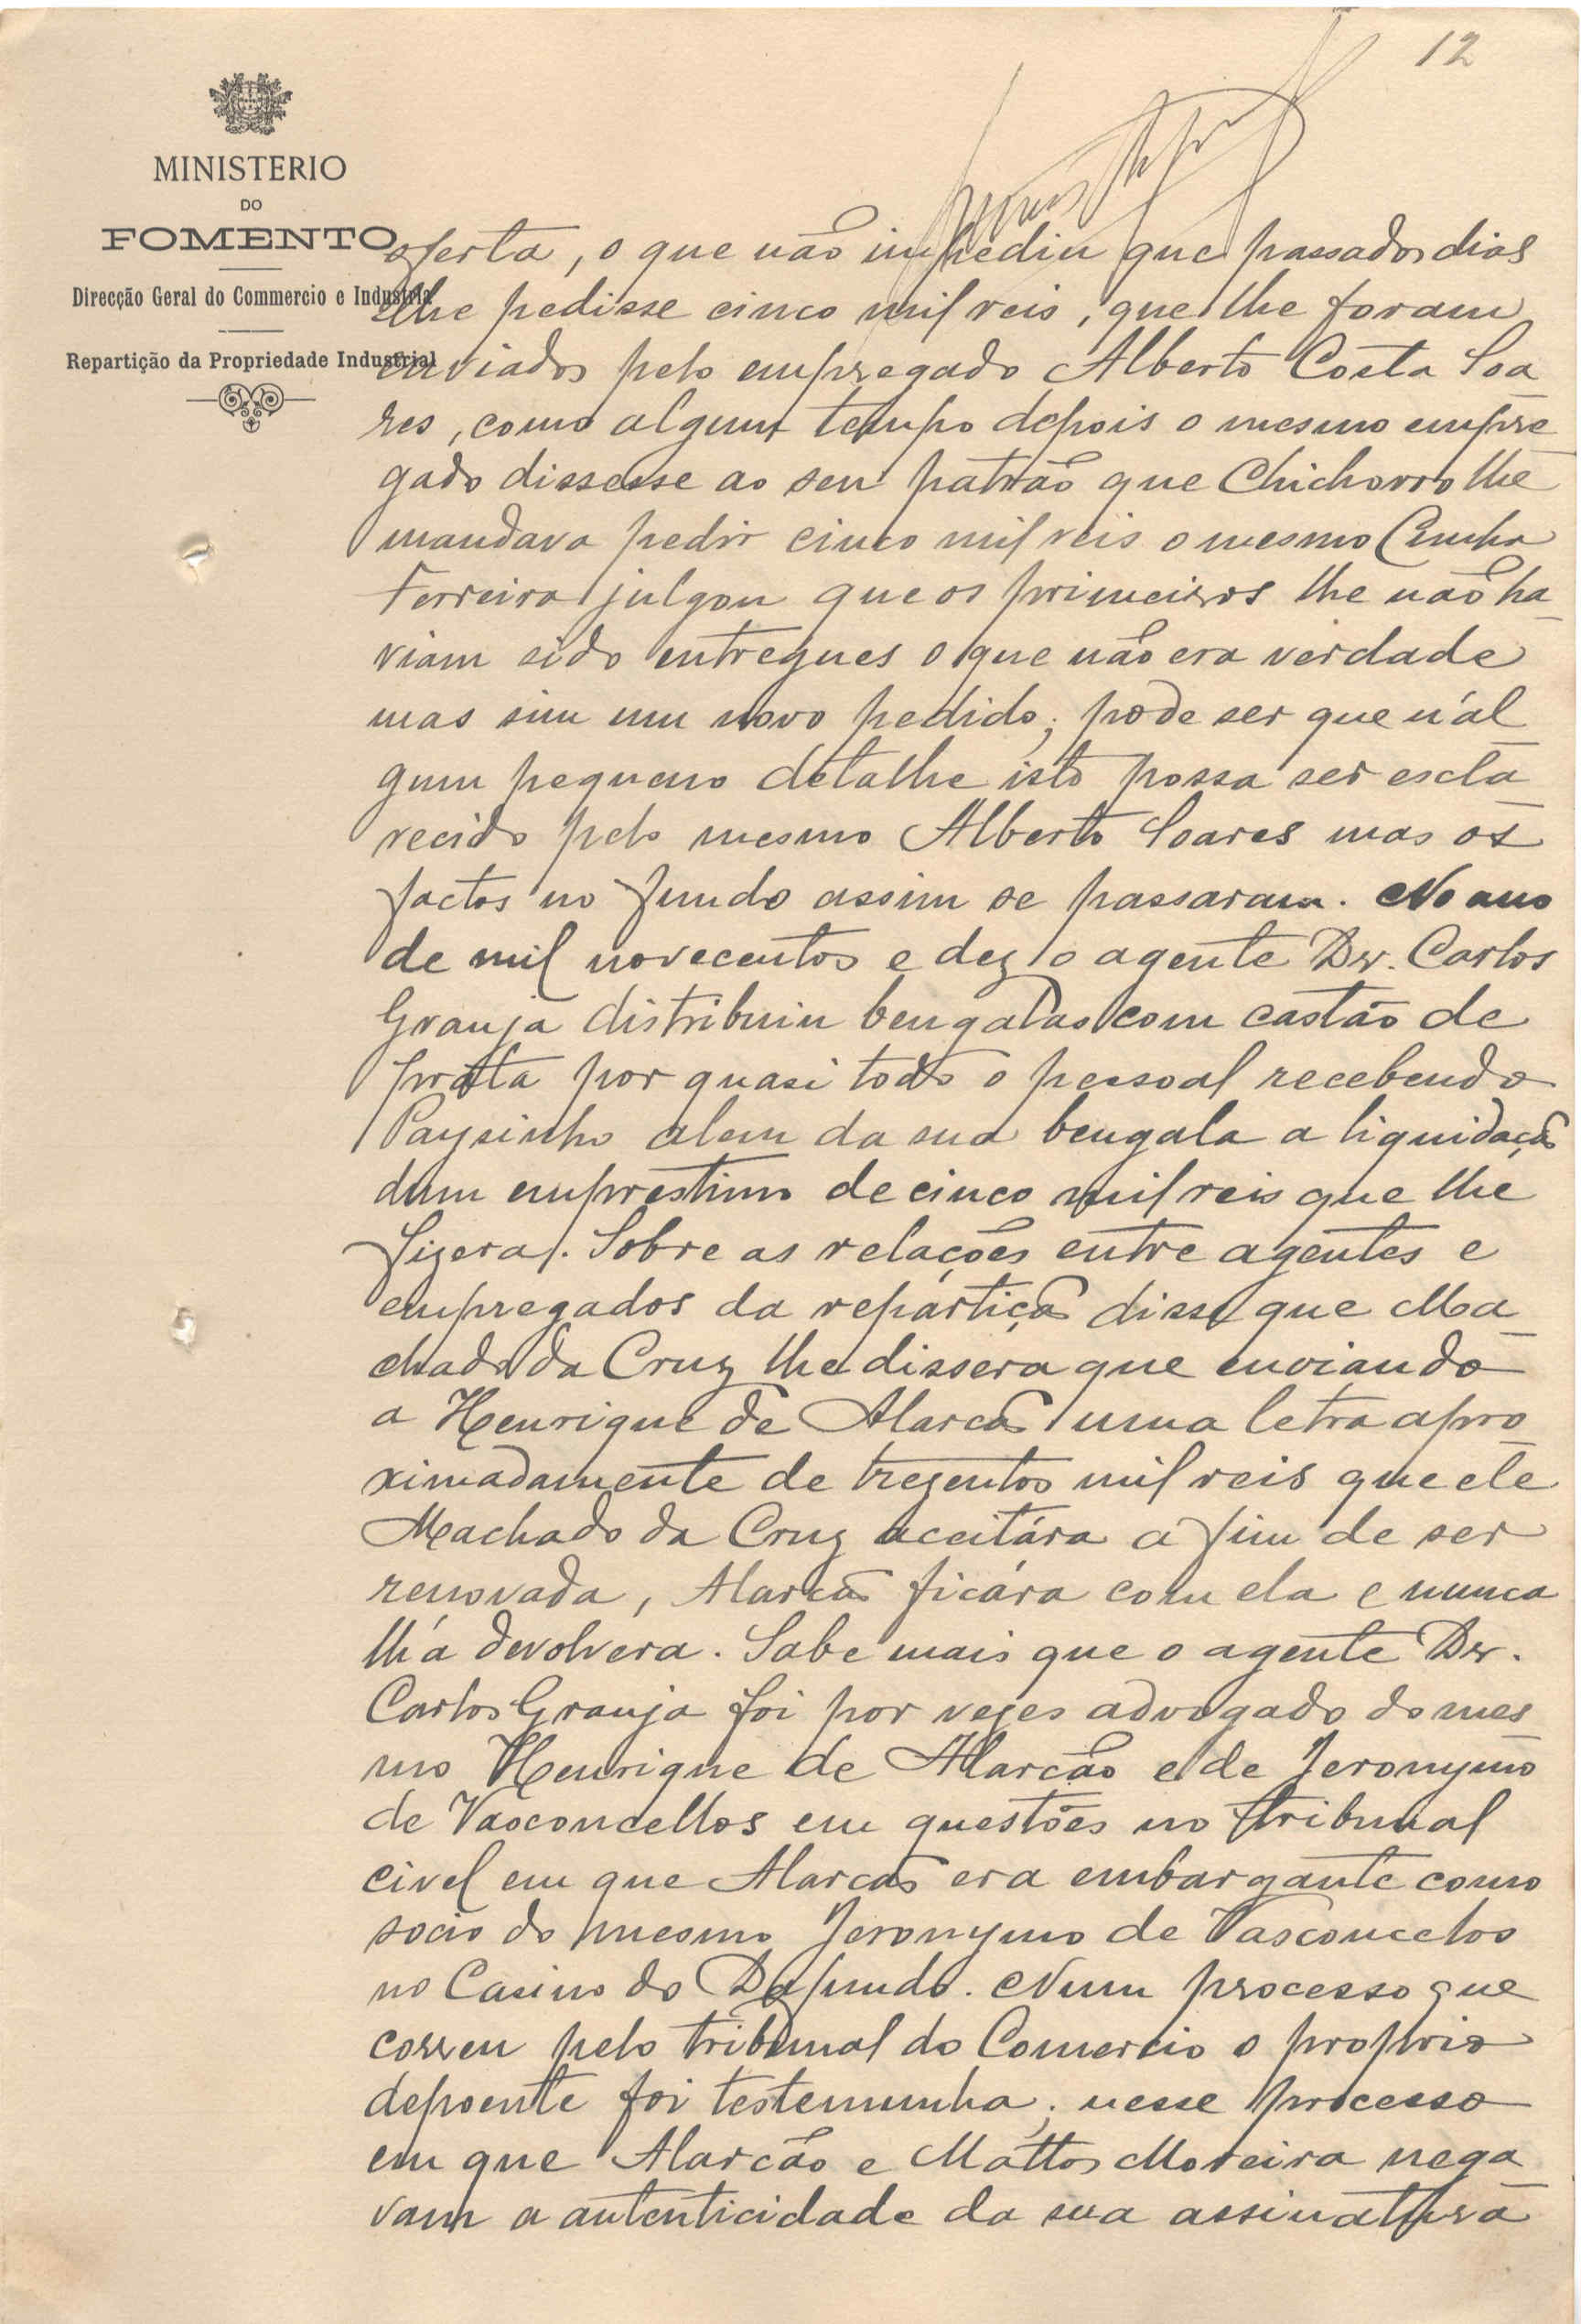 12
MINISTERIO
DO
FOMENTO
Direcção Geral do Commercio e Industria
Repartição da Propriedade Industrial
oferta, o que não impediu que passados dias
lhe pedisse cinco mil reis, que lhe foram
enviados pelo empregado Alberto Costa Soa
res, como algum tempo depois o mesmo empre
gado dissesse ao seu patrão que Chichorro lhe
mandava pedir cinco mil reis o mesmo Cunha
Ferreira julgou que os primeiros lhe não ha
viam sido entregues o que não era verdade
mas sim um novo pedido; póde ser que n'al
gum pequeno detalhe isto possa ser escla
recido pelo mesmo Alberto Soares mas os
factos no fundo assim se passaram. No ano
de mil novecentos e dez o agente Dr. Carlos
Granja distribuiu bengalas com castão de
prata por quasi todo o pessoal recebendo
Paysinho alem da sua bengala a liquidação
dum emprestimo de cinco mil reis que lhe
fizera. Sobre as relações entre agentes e
empregados da repartição disse que Ma
chado da Cruz lhe dissera que enviando
a Henrique de Alarcão uma letra apro
ximadamente de trezentos mil reis que ele
Machado da Cruz aceitára a fim de ser
renovada, Alarcão ficára com ela e nunca
lh'a devolvera. Sabe mais que o agente Dr.
Carlos Granja foi por vezes advogado do mes
mo Henrique de Alarcão e de Jeronymo
de Vasconcellos em questões no tribunal
civel em que Alarcão era embargante como
socio do mesmo Jeronymo de Vasconcelos
no Casino do Dafundo. Num processo que
correu pelo tribunal do Comercio o proprio
depoente foi testemunha; nesse processo
em que Alarcão e Mattos Moreira nega
vam a autenticidade da sua assinatura